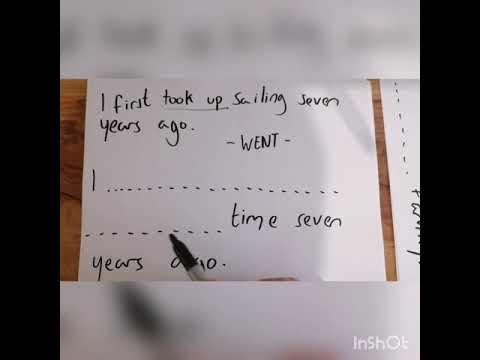 I first took up sailing seven
years ago.
- WENT -
I ........................
.............. time seven
years ago.
InShOt